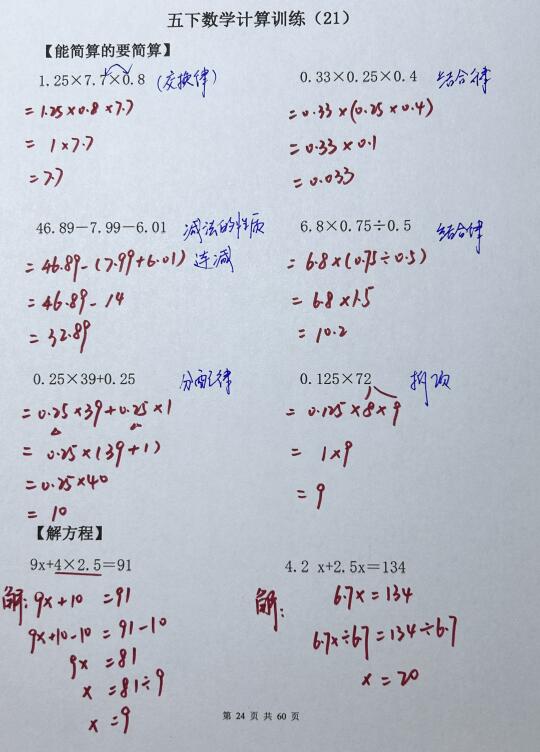 五下数学计算训练（21）
【能简算的要简算】
1.25×7.7×0.8 (交换律)
=1.25×0.8×7.7
=1×7.7
=7.7
0.33×0.25×0.4 结合律
=0.33×(0.25×0.4)
=0.33×0.1
=0.033
46.89－7.99－6.01 减法的性质
=46.89-(7.99+6.01) 连减
=46.89-14
=32.89
6.8×0.75÷0.5 结合律
=6.8×(0.75÷0.5)
=6.8×1.5
=10.2
0.25×39+0.25 分配律
=0.25×39+0.25×1
=0.25×(39+1)
=0.25×40
=10
0.125×72 拆项
=0.125×8×9
=1×9
=9
【解方程】
9x+4×2.5=91
解: 9x+10=91
9x+10-10=91-10
9x=81
x=81÷9
x=9
4.2 x+2.5x=134
解: 6.7x=134
6.7x÷6.7=134÷6.7
x=20
第 24 页 共 60 页